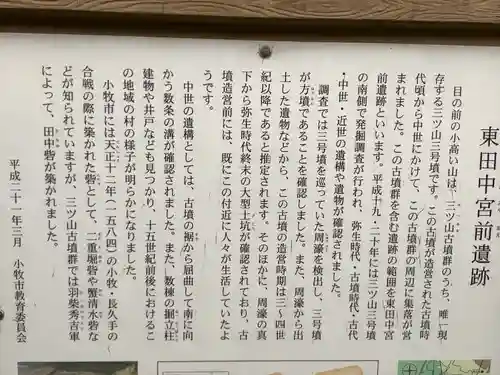 東田中宮前遺跡
目の前の小高い山は、三ツ山古墳群のうち、唯一現
存する三ツ山三号墳です。この古墳が造営された古墳時
代頃から中世にかけて、この古墳群の周辺に集落が営
まれました。この古墳群を含む遺跡の範囲を東田中宮
前遺跡といいます。平成十九・二十年には三ツ山三号墳
の南側で発掘調査が行われ、弥生時代・古墳時代・古代
・中世・近世の遺構や遺物が確認されました。
調査では三号墳を巡っていた周濠を検出し、三号墳
が方墳であることを確認しました。また、周濠から出
土した遺物などから、この古墳の造営時期は三～四世
紀以降であると推定されます。そのほかに、周濠の真
下から弥生時代終末の大型土坑が確認されており、古
墳造営前には、既にこの付近に人々が生活していたよ
うです。
中世の遺構としては、古墳の裾から屈曲して南に向
かう数条の溝が確認されました。また、数棟の掘立柱
建物や井戸なども見つかり、十五世紀前後におけるこ
の地域の村の様子が明らかになりました。
小牧市には天正十二年(一五八四)の小牧・長久手の
合戦の際に築かれた砦として、二重堀砦や蟹清水砦な
どが知られていますが、三ツ山古墳群では羽柴秀吉軍
によって、田中砦が築かれました。
平成二十一年三月 小牧市教育委員会